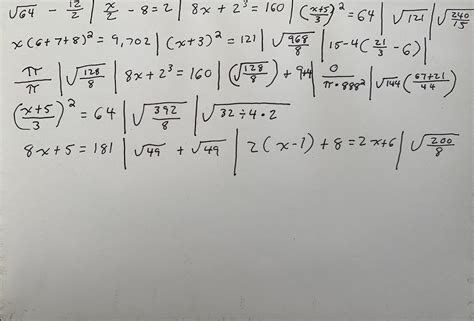 √64 - 12/2 | x/2 - 8 = 2 | 8x + 2³ = 160 | (x+5/3)² = 64 | √121 | √240/15
x(6+7+8)² = 9,702 | (x+3)² = 121 | √968/8 | 15-4(21/3 - 6) |
π/π | √128/8 | 8x + 2³ = 160 | (√128/8) + 9+1 | 0/π•888² | √144(67+21/44)
(x+5/3)² = 64 | √392/8 | √32÷4•2
8x+5 = 181 | √49 + √49 | 2(x-1) + 8 = 2x+6 | √200/8